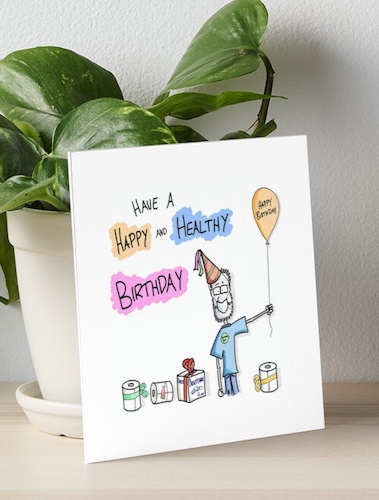 HAVE A
HAPPY AND HEALTHY
BIRTHDAY
HAPPY
BIRTHDAY